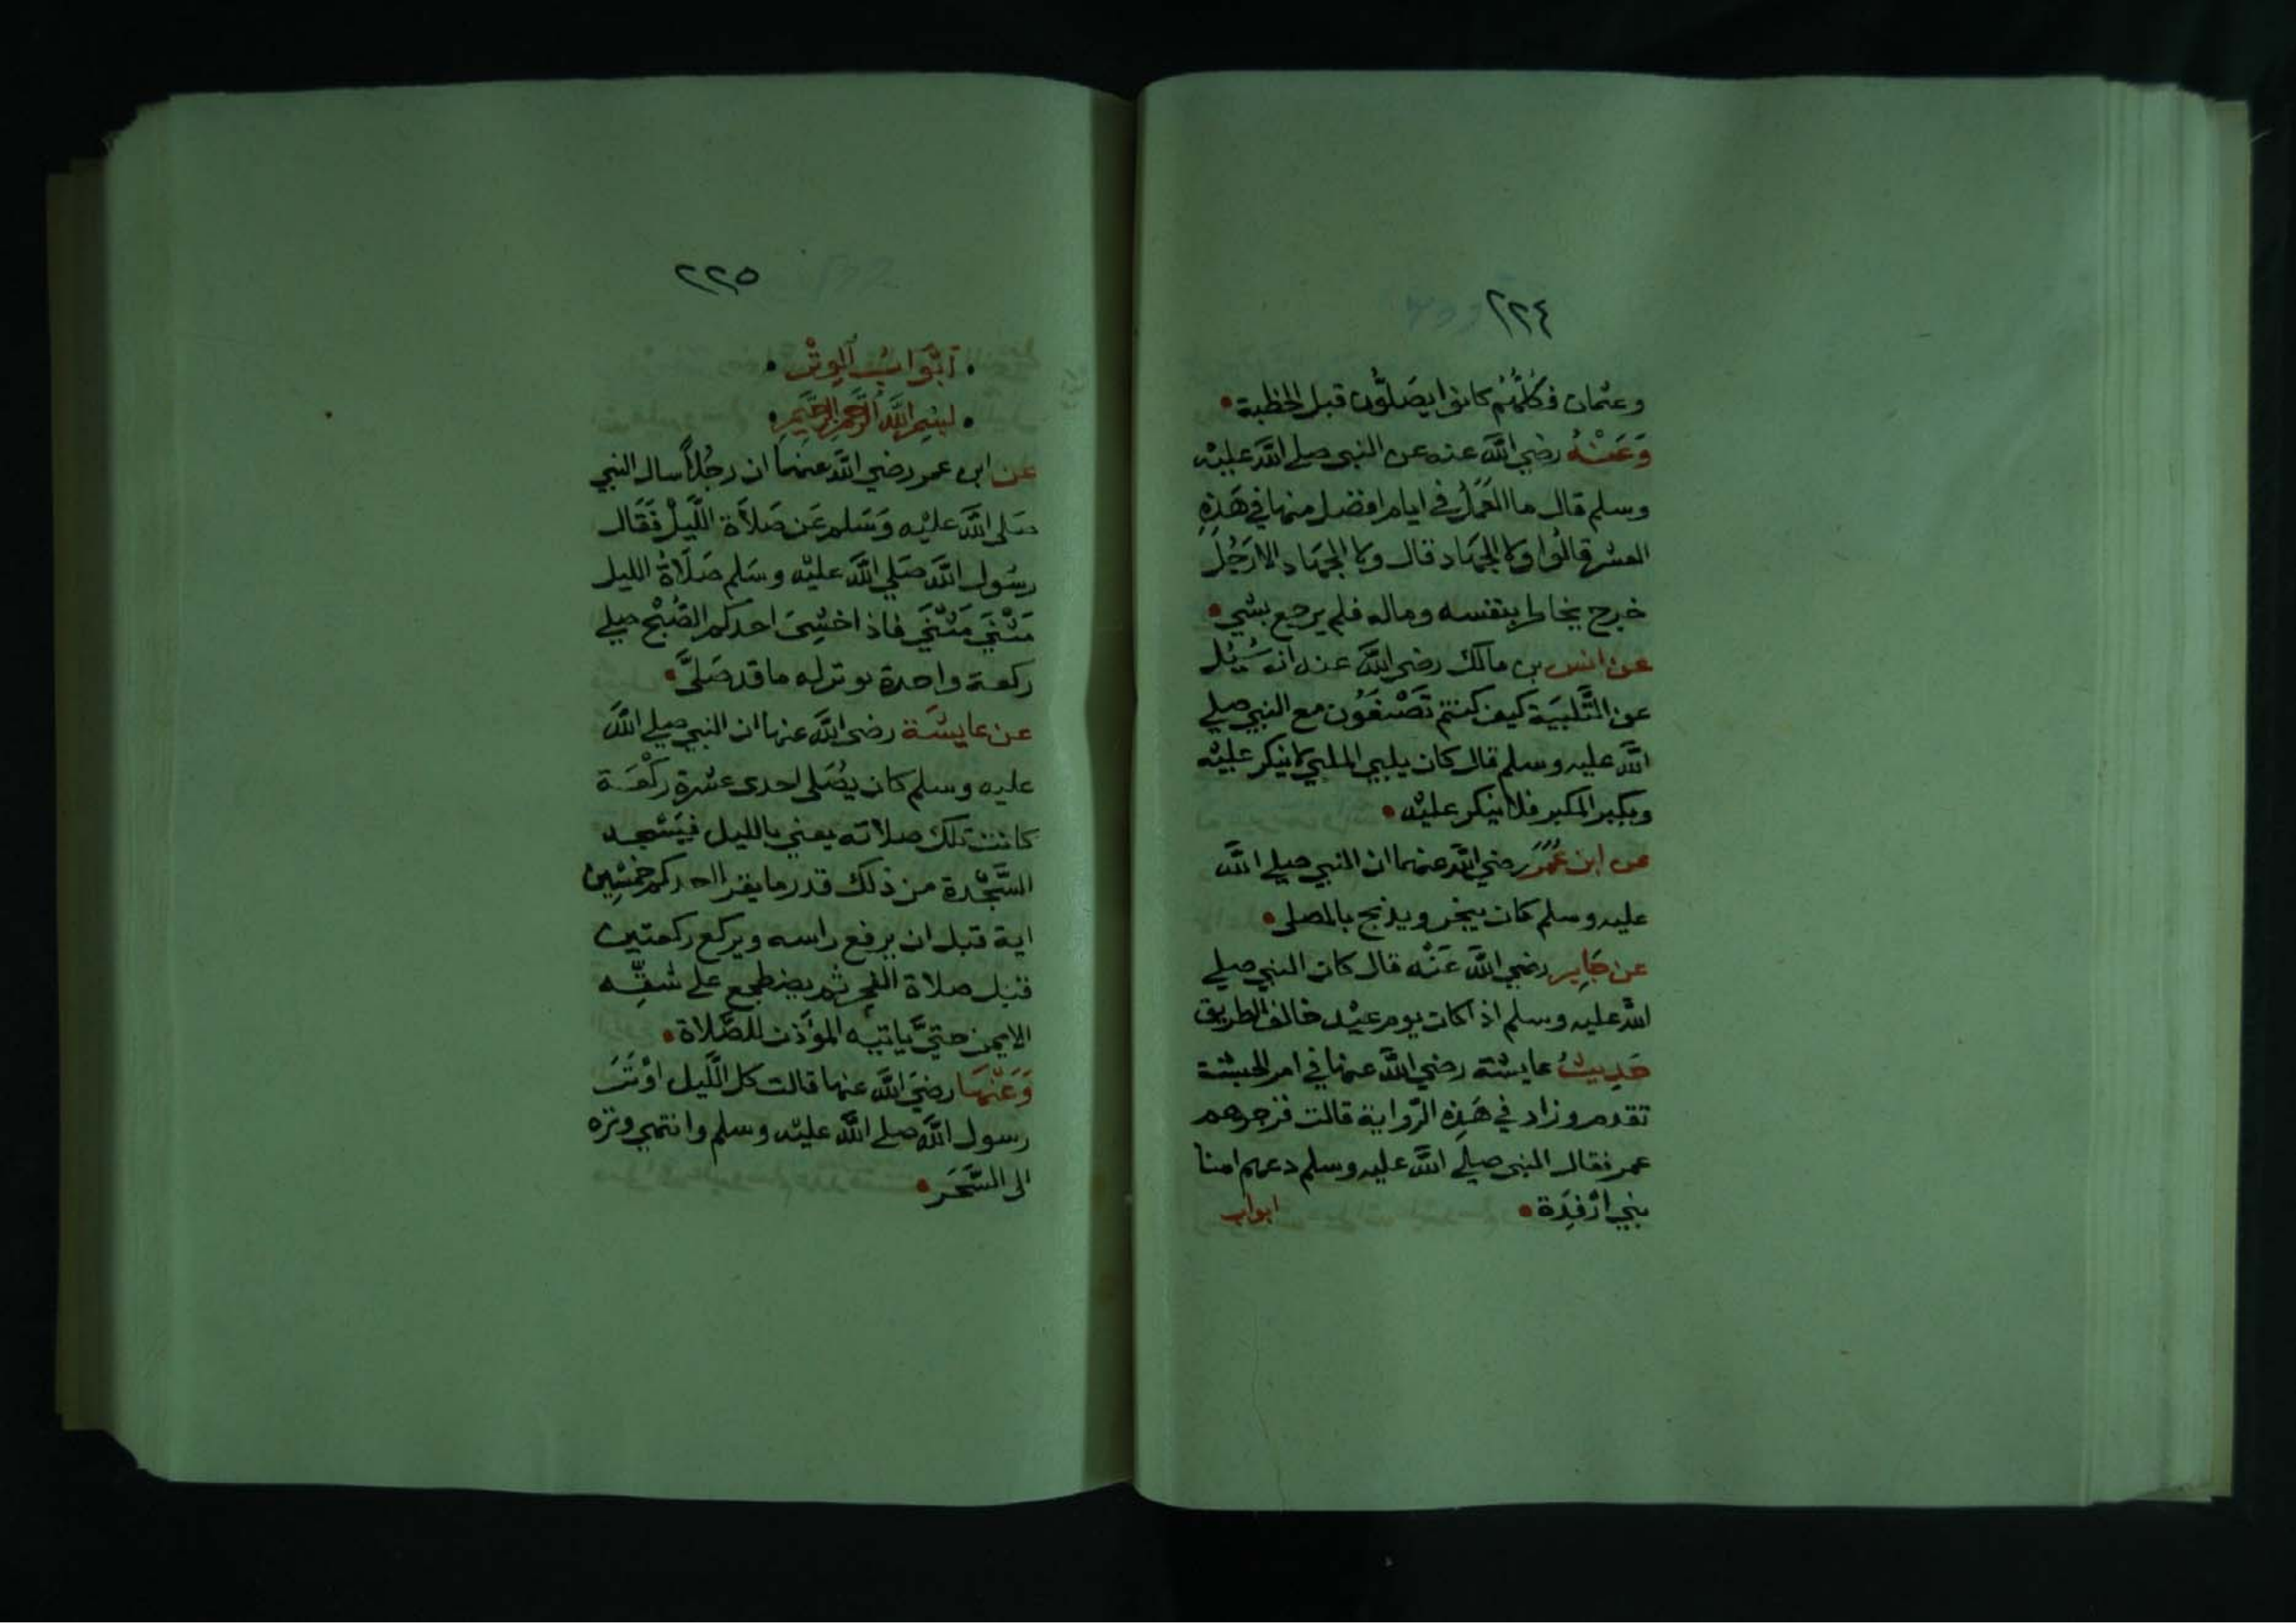 ٢٢٤
وعثمان فكُلُّهُم كانوا يصَلُّون قبل الخطبة
وَعَنْهُ رضي اللَّه عنه عن النبي صلى اللَّه عليْه
وسلم قال ما العَمَلُ في ايام افضل منها في هَذِهِ
العشر قالوا ولا الجهَاد قال ولا الجهَاد الا رَجُل
خرج يخاطر بنفسه وماله فلم يرجع بشي
عن انس بن مالك رضي اللَّه عنه انه سُيُل
عن التَّلبيَة كيف كنتم تَصْنعُون مع النبي صلي
اللَّه عليه وسلم قال كان يلبي الملبي لا ينكر عليْه
ويكبر المكبر فلا ينكر عليْه
عن ابن عُمَرَ رضي اللَّه عنهما ان النبي صلي اللَّه
عليه وسلم كان ينحر ويذبح بالمصلى
عن جَابِر رضي اللَّه عَنْه قال كان النبي صلي
اللَّه عليه وسلم اذا كان يوم عيْد خالف الطريق
حَدِيثُ عايشة رضي اللَّه عنها في امر الحبشة
تقدم وزاد في هَذِه الرّواية قالت فزجرهم
عمر فقال النبي صلي اللَّه عليه وسلم دعهم امنا
بني ارْفِدَة
ابواب
٢٢٥
اَبْوَابُ الوِتْر
بسم اللَّه الرَّحمن الرَّحيم
عن ابن عمر رضي اللَّه عنهما ان رجُلاً سال النبي
صَلى اللَّه عليْه وَسَلم عَن صَلاَة اللَّيلْ فَقَال
رسُول اللَّه صَلي اللَّه عليْه وسَلم صَلَاةُ الليل
مَثْنَي مَثْنَي فاذا خشِيَ احدكم الصُّبْح صلي
ركعة واحدة توتر له ما قد صَلَّى
عن عايشَة رضي اللَّه عنها ان النبي صلي اللَّه
عليه وسلم كان يُصَلى احدى عشرة ركْعَة
كانت تلك صلاته يعني بالليل فيَسْجد
السَّجْدة من ذلك قدر ما يقرا احدكم خمْسِين
اية قبل ان يرفع راسه ويركع ركعتين
قبل صلاة الفجر ثم يضطجع على شقِّه
الايمن حتيَّ ياتيَه المؤَذن للصَّلاة
وَعَنْهَا رضيَ اللَّه عنها قالت كل اللَّيل اوْتَرَ
رسول اللَّه صلي اللَّه عليْه وسلم وانتهي وتره
الى السَّحَر